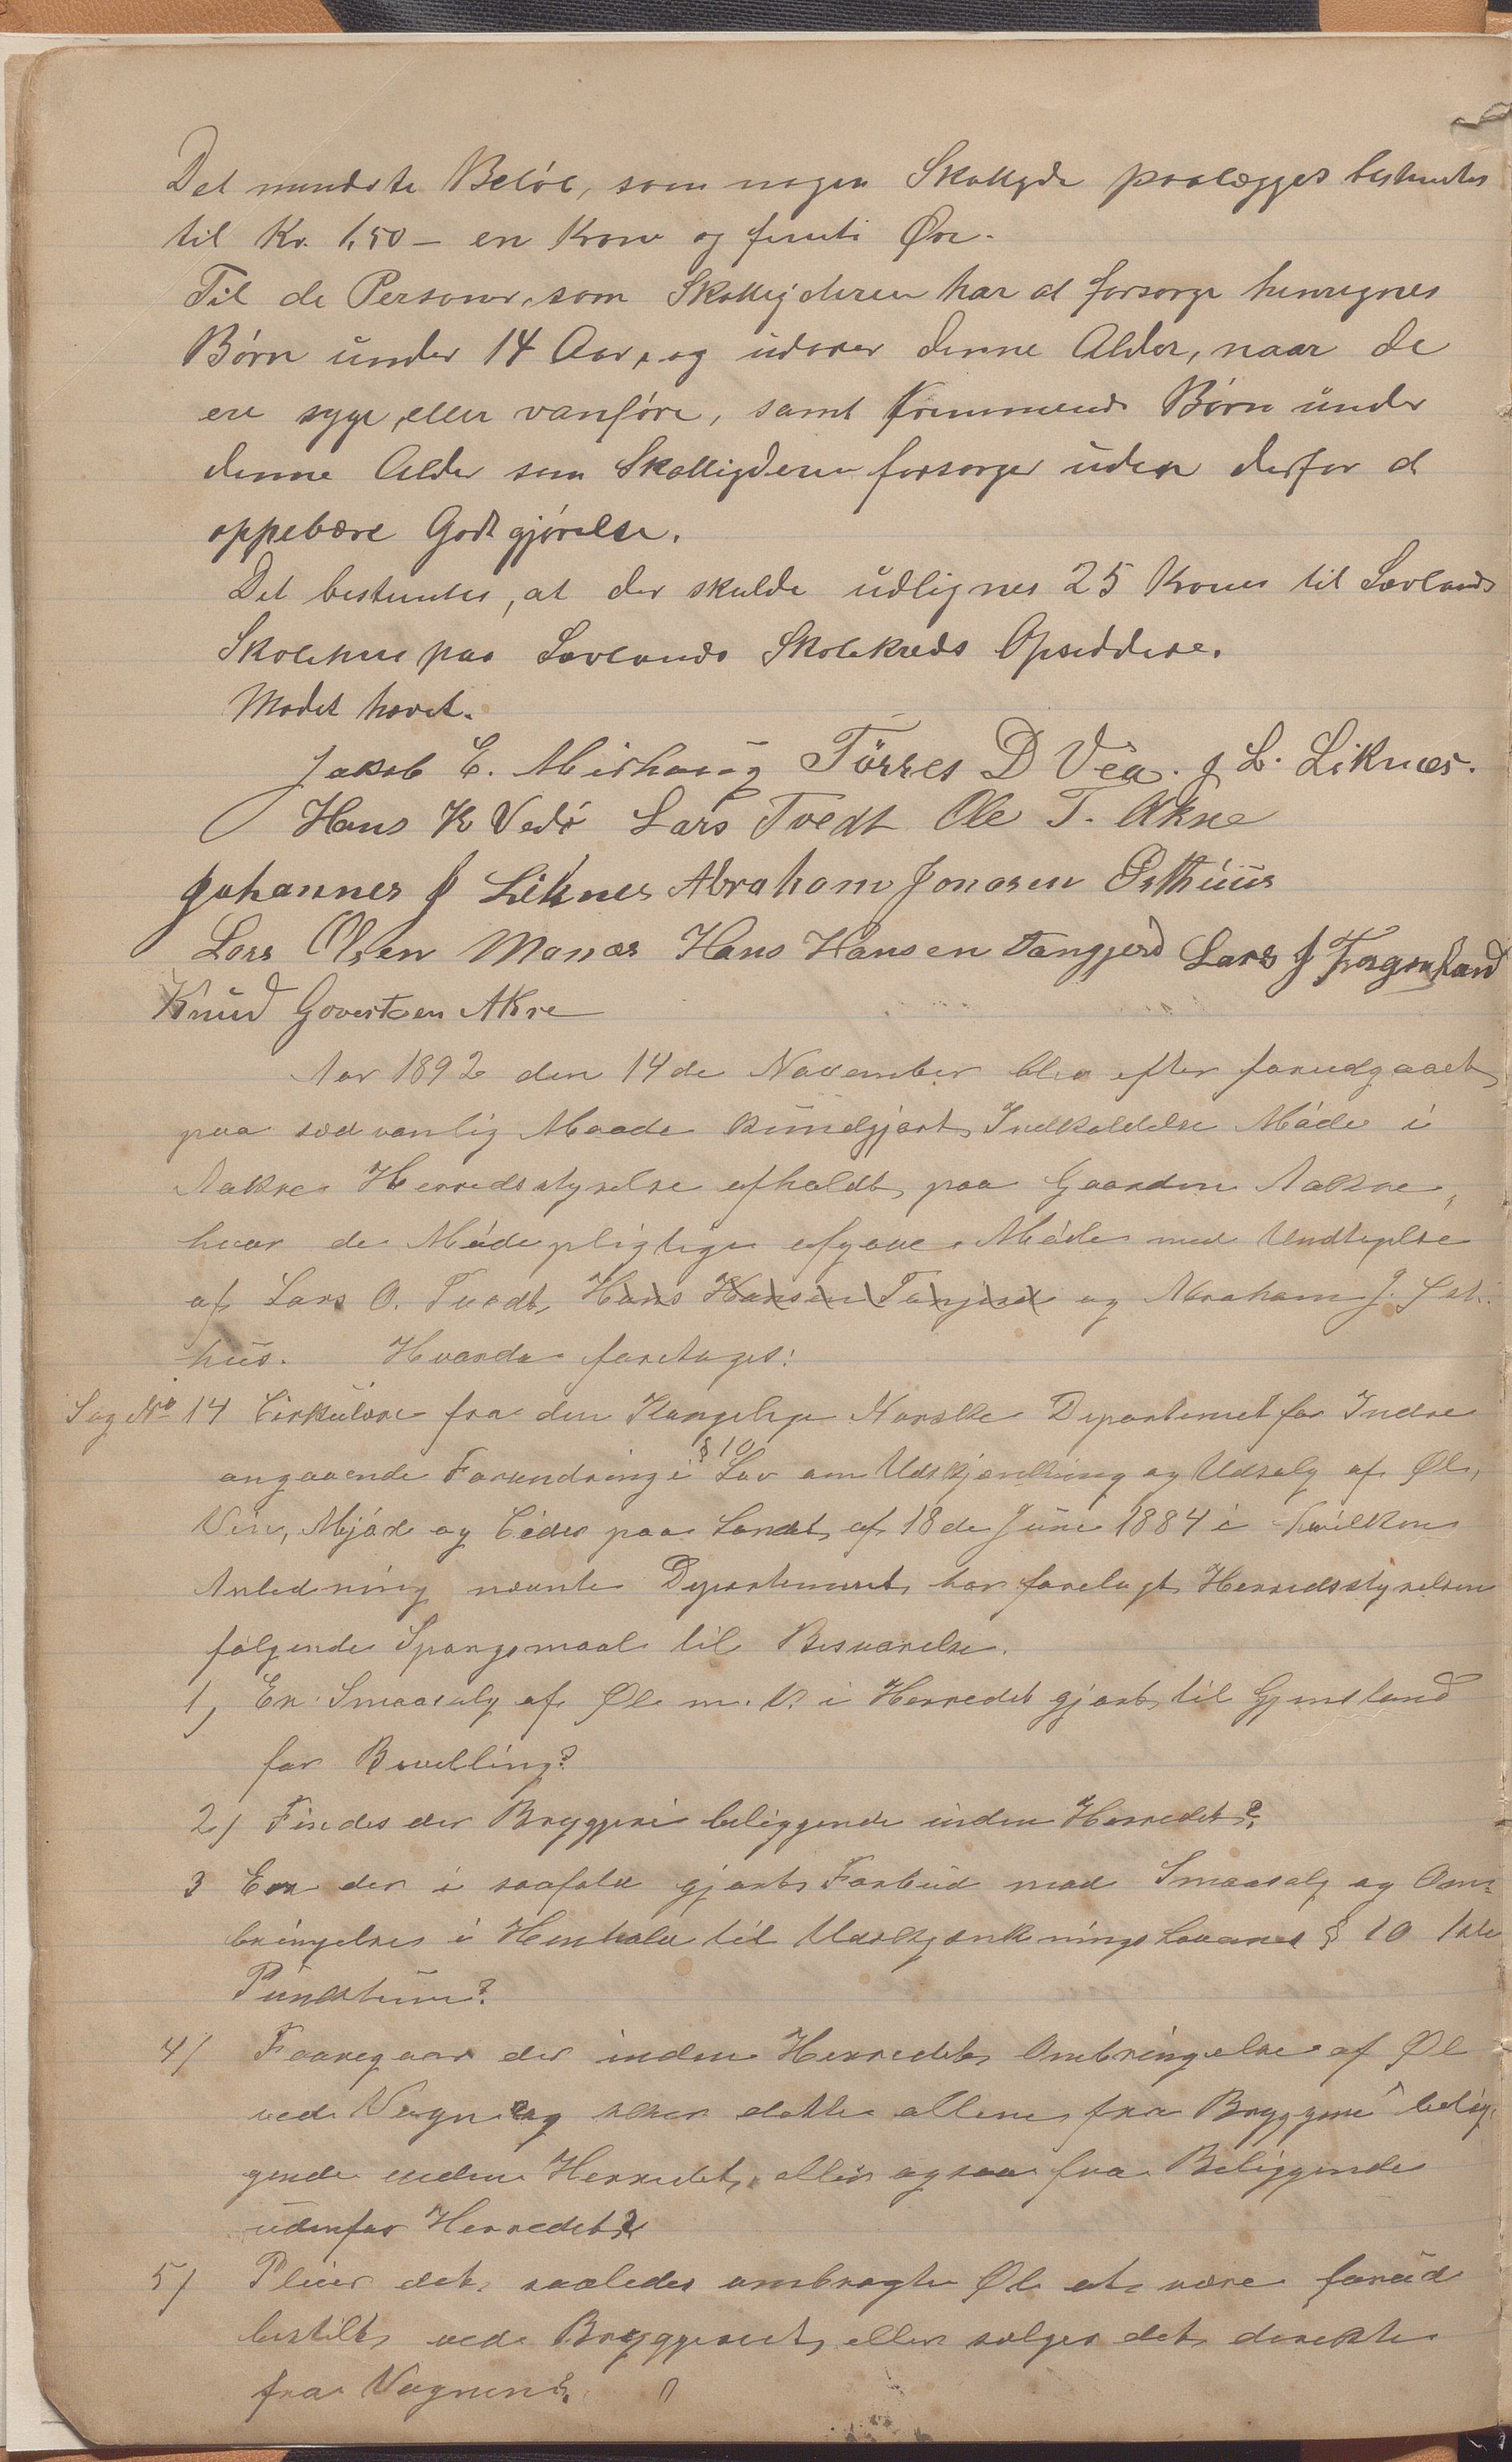 Det mindste Beløb, som nogen Skatteyder paalægges bestemtes
til Kr. 1,50 – en Krone og femti Øre.
Til de Personer, som Skatteyderen har at forsørge henregnes
Børn under 14 Aar, og udover denne Alder, naar de
ere syge eller vanføre, samt fremmende Børn under
denne Alder som Skatteyderen forsørger uden derfor at
oppebære Godtgjørelse.
Det bestemtes, at der skulde udlignes 25 Kroner til Sævlands
Skolehus paa Sævlands Skolekreds Opsiddere.
Mødet hævet.
Jakob E. Mirhaug Törres D Vea. J L. Liknæs.
Hans K Vedø Lars Tvedt Ole T. Akre
Johannes J Liknes Abraham Jonasen Østhuus
Lars Olsen Manæs Hans Hansen Tangjerd Lars J
Knud Govertsen Akre
Aar 1892 den 14de November blev efter forudgaaet
paa sædvanlig Maade kundgjort Indkaldelse Møde i
Aakre Herredsstyrelse afholdt paa Gaarden Aakre,
hvor de Mødepligtige afgave Møde med Undtagelse
af Lars O. Tvedt, Hans Hansen Tangjerd og Abraham J. Øst-
huus. Hvorda foretages:
Sag No 14 Cirkulære fra den Kongelige Norske Departemet for Indre
angaaende Forandring i § 10 Lov om Udskjænkning og Udsalg af Øl,
Vin, Mjød og Cider paa Landet af 18de Juni 1884 i hvilken
Anledning nævnte Departement har forelagt Herredsstyrelsen
følgende Spørgsmaal til Besvarelse.
1) Er Smaasalg af Øl m. V. i Herredet gjort til Gjenstand
for Bevilling?
2) Findes der Bryggeri beliggende inden Herredet?
3 Er der i saafald gjort Forbud mod Smaasalg og Om-
bringelse i Henhold til Udskjænkningslovens § 10 1ste
Punktum?
4) Foregaar der inden Herredet Ombringelse af Øl
ved Vogn og sker dette allene fra Bryggeri belig-
gende inden Herredet, eller ogsaa fra Beliggende
udenfor Herredet?
5) Pleier det saaledes ombragte Øl at være forud
bestilt ved Bryggeriet, eller sælges det direkte
fra Vognene?